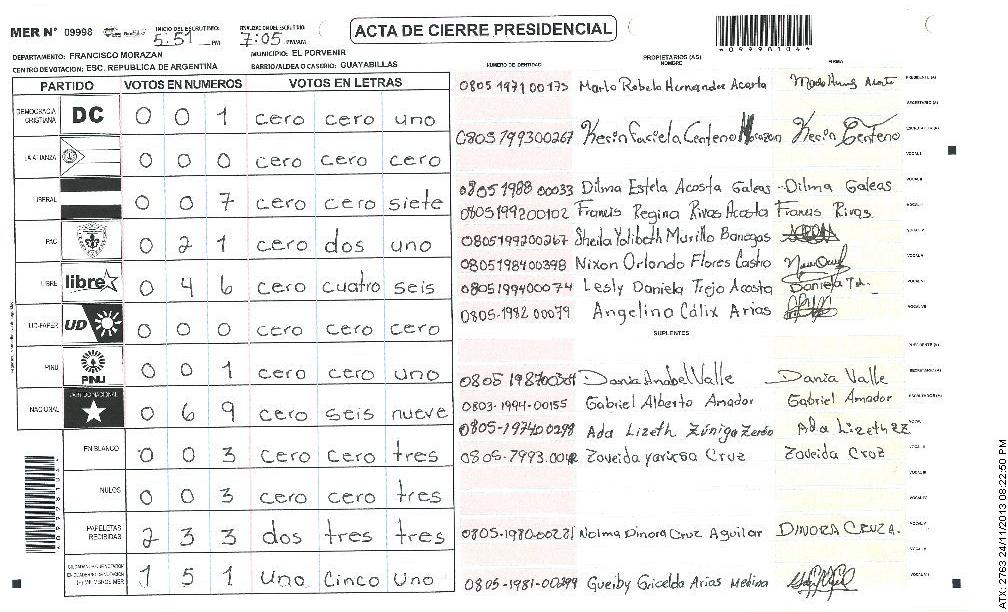 MER N° 09998
INICIO DEL ESCRUTINIO: 5:51 PM
FINALIZACION DEL ESCRUTINIO: 7:05 PM/AM
ACTA DE CIERRE PRESIDENCIAL
DEPARTAMENTO: FRANCISCO MORAZAN
MUNICIPIO: EL PORVENIR
CENTRO DE VOTACION: ESC. REPUBLICA DE ARGENTINA
BARRIO/ALDEA O CASERIO: GUAYABILLAS
PARTIDO VOTOS EN NUMEROS VOTOS EN LETRAS
DEMOCRACIA CRISTIANA DC 0 0 1 cero cero uno
LA ALIANZA 0 0 0 cero cero cero
LIBERAL 0 0 7 cero cero siete
PAC 0 2 1 cero dos uno
LIBRE libre 0 4 6 cero cuatro seis
UD-FAPER UD 0 0 0 cero cero cero
PINU PINU 0 0 1 cero cero uno
NACIONAL PARTIDO NACIONAL 0 6 9 cero seis nueve
EN BLANCO 0 0 3 cero cero tres
NULOS 0 0 3 cero cero tres
PAPELETAS RECIBIDAS 2 3 3 dos tres tres
1 5 1 Uno Cinco Uno
NUMERO DE IDENTIDAD PROPIETARIOS (AS) NOMBRE FIRMA
0805 1971 00173 Marlo Hernandez Acosta PRESIDENTE (A)
SECRETARIO (A)
0805199300267 Kecin Centeno Kecin Centeno ESCRUTADOR (A)
VOCAL I
0805 1988 00033 Dilma Estela Acosta Galeas Dilma Galeas
0805199200102 Francis Regina Rivas Acosta Francis Rivas
0805199200267 Sheila Yalibeth Murillo Banegas
0805198400398 Nixon Orlando Flores Castro
0805199400074 Lesly Daniela Trejo Acosta Daniela
0805-1982 00079 Angelino Cálix Arias
SUPLENTES
PRESIDENTE (A)
Dania Anabel Valle Dania Valle SECRETARIO (A)
0803-1994-00155 Gabriel Alberto Amador Gabriel Amador ESCRUTADOR (A)
0805-197400298 Ada Lizeth Zúniga Zerón Ada Lizeth ZZ
Zoveida Cruz Zoveida Cruz
0805-1980-00281 Nolma Dinora Cruz Aguilar DINORA CRUZ A.
0805-1981-00299 Gueiby Gricelda Arias Medina
ATX-2763 24/11/2013 08:22:50 PM